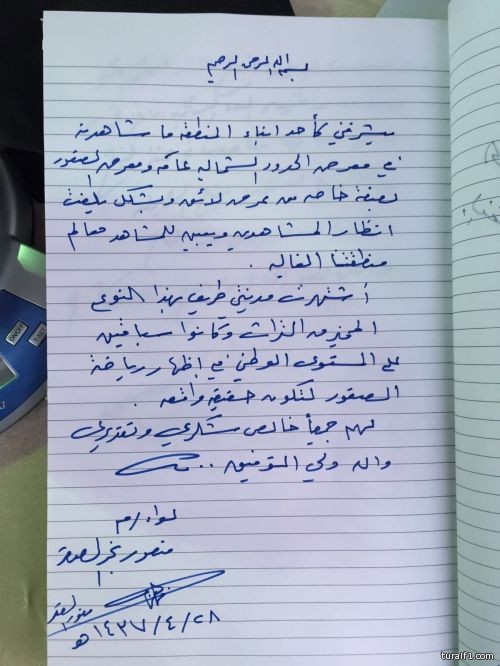 بسم الله الرحمن الرحيم
يشرفني كأحد ابناء المنطقة ما شاهدته
في معرض الحدود الشمالية عامة ومعرض الصقور
بصفة خاصة من عرض لائق وبشكل يلفت
انظار المشاهدين ويبين للمشاهد معالم
منطقتنا الغالية .
اشتهرت مدينتي طريف بهذا النوع
المميز من التراث وكانوا سباقين
على المستوى الوطني في إظهار رياضة
الصقور لتكون حقيقة واقعة .
لهم جميعاً خالص شكري وتقديري
والله ولي التوفيق ..
لواء م
منصور
منصور
١٤٣٧/٤/٢٨ هـ
ON/OFF
turaif1.com